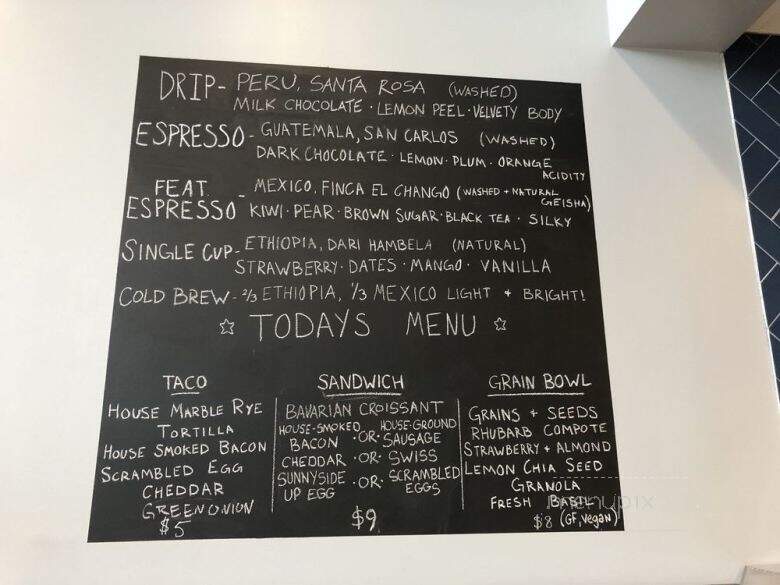 DRIP - PERU, SANTA ROSA (WASHED)
MILK CHOCOLATE · LEMON PEEL · VELVETY BODY
ESPRESSO - GUATEMALA, SAN CARLOS (WASHED)
DARK CHOCOLATE · LEMON · PLUM · ORANGE ACIDITY
FEAT. ESPRESSO - MEXICO, FINCA EL CHANGO (WASHED + NATURAL GEISHA)
KIWI · PEAR · BROWN SUGAR · BLACK TEA · SILKY
SINGLE CUP - ETHIOPIA, DARI HAMBELA (NATURAL)
STRAWBERRY · DATES · MANGO · VANILLA
COLD BREW - 2/3 ETHIOPIA, 1/3 MEXICO LIGHT + BRIGHT!
☆ TODAYS MENU ☆
TACO
HOUSE MARBLE RYE
TORTILLA
HOUSE SMOKED BACON
SCRAMBLED EGG
CHEDDAR
GREEN ONION
$5
SANDWICH
BAVARIAN CROISSANT
HOUSE-SMOKED BACON · OR · HOUSE-GROUND SAUSAGE
CHEDDAR · OR · SWISS
SUNNYSIDE UP EGG · OR · SCRAMBLED EGGS
$9
GRAIN BOWL
GRAINS + SEEDS
RHUBARB COMPOTE
STRAWBERRY + ALMOND
LEMON CHIA SEED
GRANOLA
FRESH BASIL
$8 (GF, Vegan)
menupix